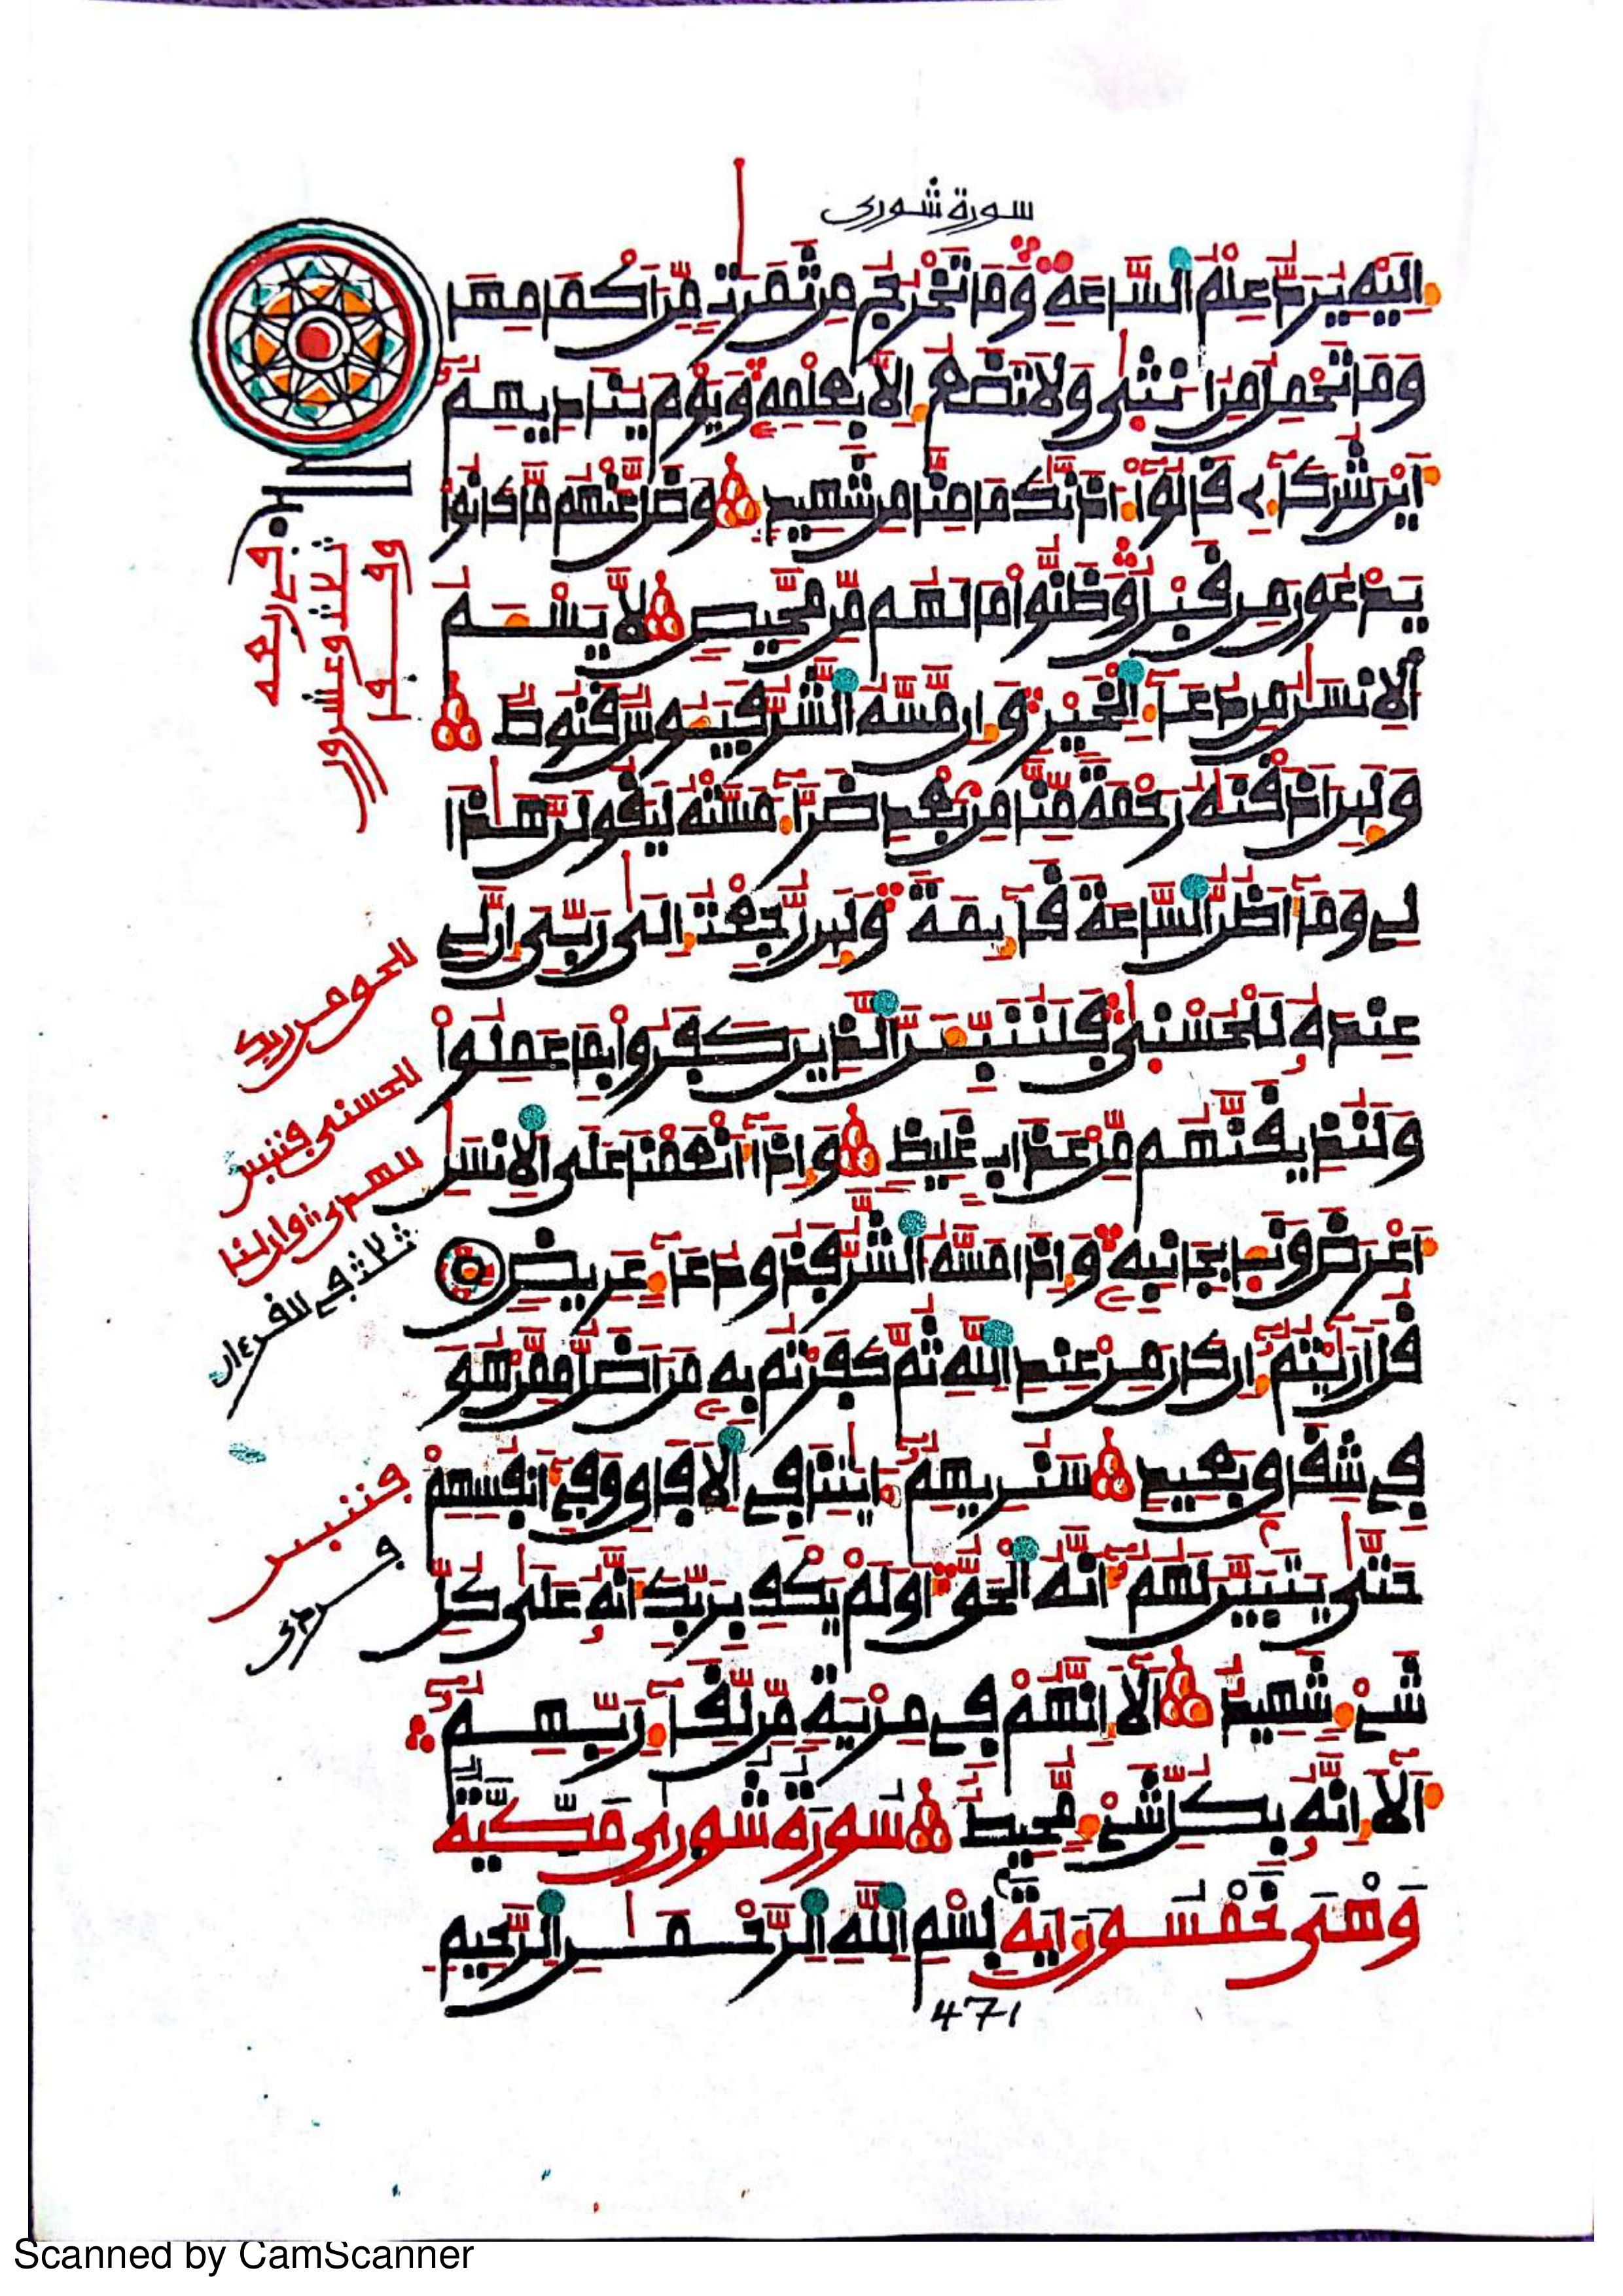 سورة شورى
اليه يرد علم الساعة وما تخرج من ثمرت من اكمامها
وما تحمل من انثى ولا تضع الا بعلمه ويوم يناديهم
اين شركاءي قالوا ءاذنك ما منا من شهيد وضل عنهم ما كانوا
يدعون من قبل وظنوا ما لهم من محيص لا يسـم
الانسن من دعاء الخير وان مسه الشر فيـوس قنوط
ولين اذقنه رحمة منا من بعد ضراء مسته ليقولن هاذا
لى وما اظن الساعة قايمة ولين رجعت الى ربى ان لى
عنده للحسنى فلننبين الذين كفروا بما عملوا
ولنذيقنهم من عذاب غليظ واذا انعمنا على الانسن
اعرض ونـا بجانبه واذا مسه الشر فذو دعاء عريض
قل ارايتم ان كان من عند الله ثم كفرتم به من اضل ممن هو
فى شقاق بعيد سنريهم ءايتنا فى الافاق وفى انفسهم
حتى يتبين لهم انه الحق اولم يكف بربك انه على كل
شىء شهيد الا انهم فى مرية من لقاء ربهم
الا انه بكل شىء محيط سورة شورى مكية
وهى خمسون اية بسم الله الرحمن الرحيم
471
Scanned by CamScanner